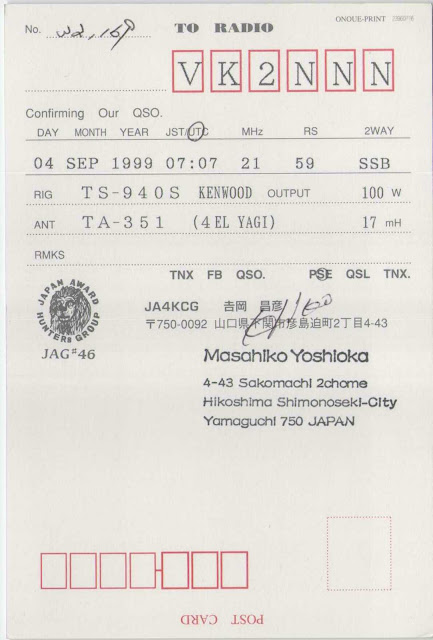 ONOUE-PRINT
No. 32,169 TO RADIO
VK2NNN
Confirming Our QSO.
DAY MONTH YEAR JST/UTC MHz RS 2WAY
04 SEP 1999 07:07 21 59 SSB
RIG TS-940S KENWOOD OUTPUT 100 W
ANT TA-351 (4EL YAGI) 17 mH
RMKS
TNX FB QSO. PSE QSL TNX.
JAPAN AWARD HUNTERS GROUP
JAG#46
JA4KCG 吉岡 昌彦
〒750-0092 山口県下関市彦島迫町2丁目4-43
Masahiko Yoshioka
4-43 Sakomachi 2chome
Hikoshima Shimonoseki-City
Yamaguchi 750 JAPAN
POST CARD